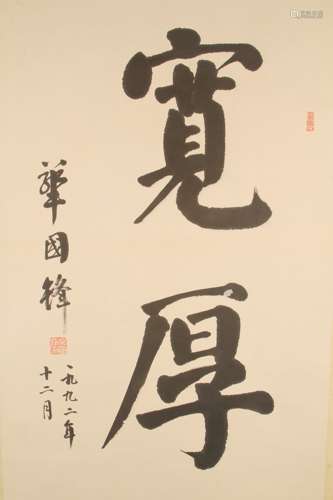 寬厚
華國鋒
一九九二年
十二月